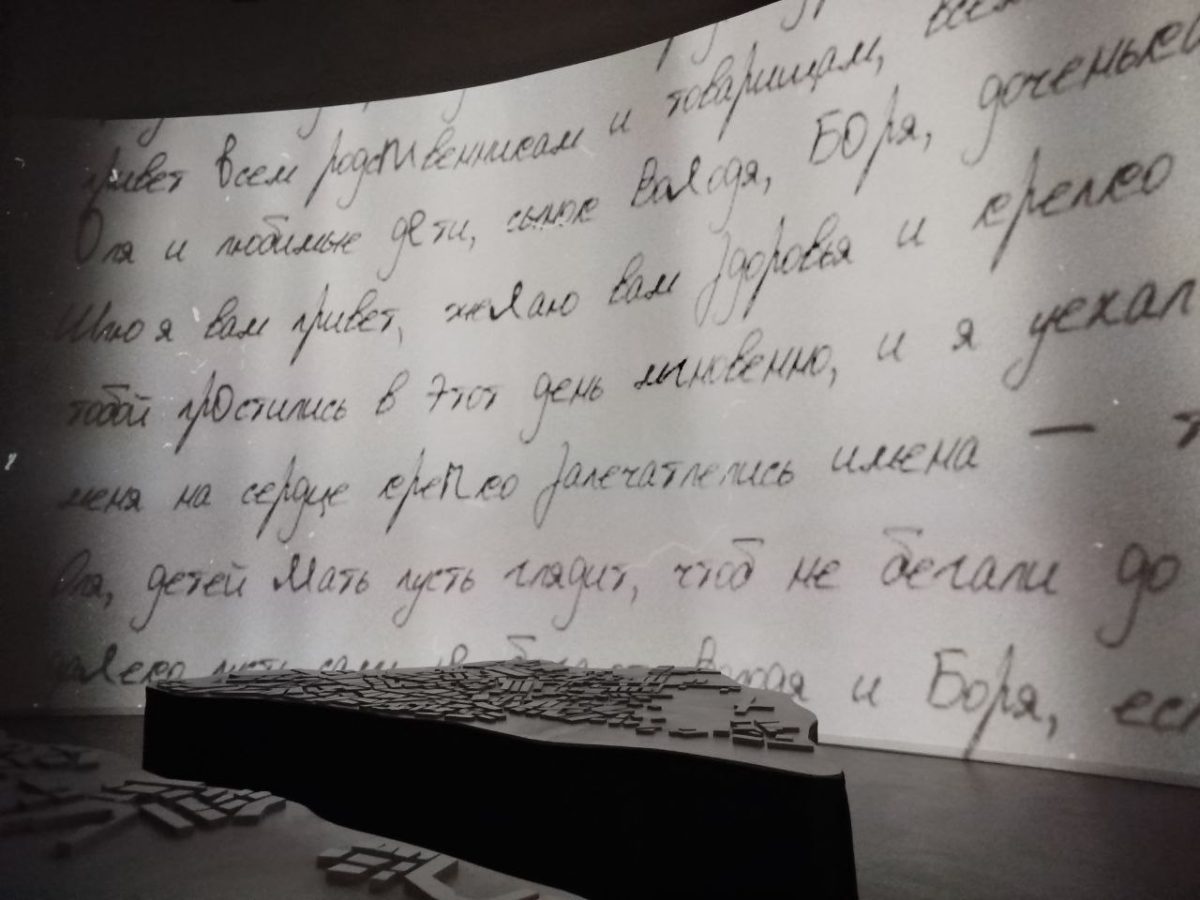 привет всем родственникам и товарищам, всем
Оля и любимые дети, сынок Валодя, Боря, доченьке
Шлю я вам привет, желаю вам здоровья и крепко
тобой простились в этот день мгновенно, и я уехал
меня на сердце крепко запечатлелись имена —
Оля, детей мать пусть глядит, чтоб не бегали до
далеко пусть и Боря,